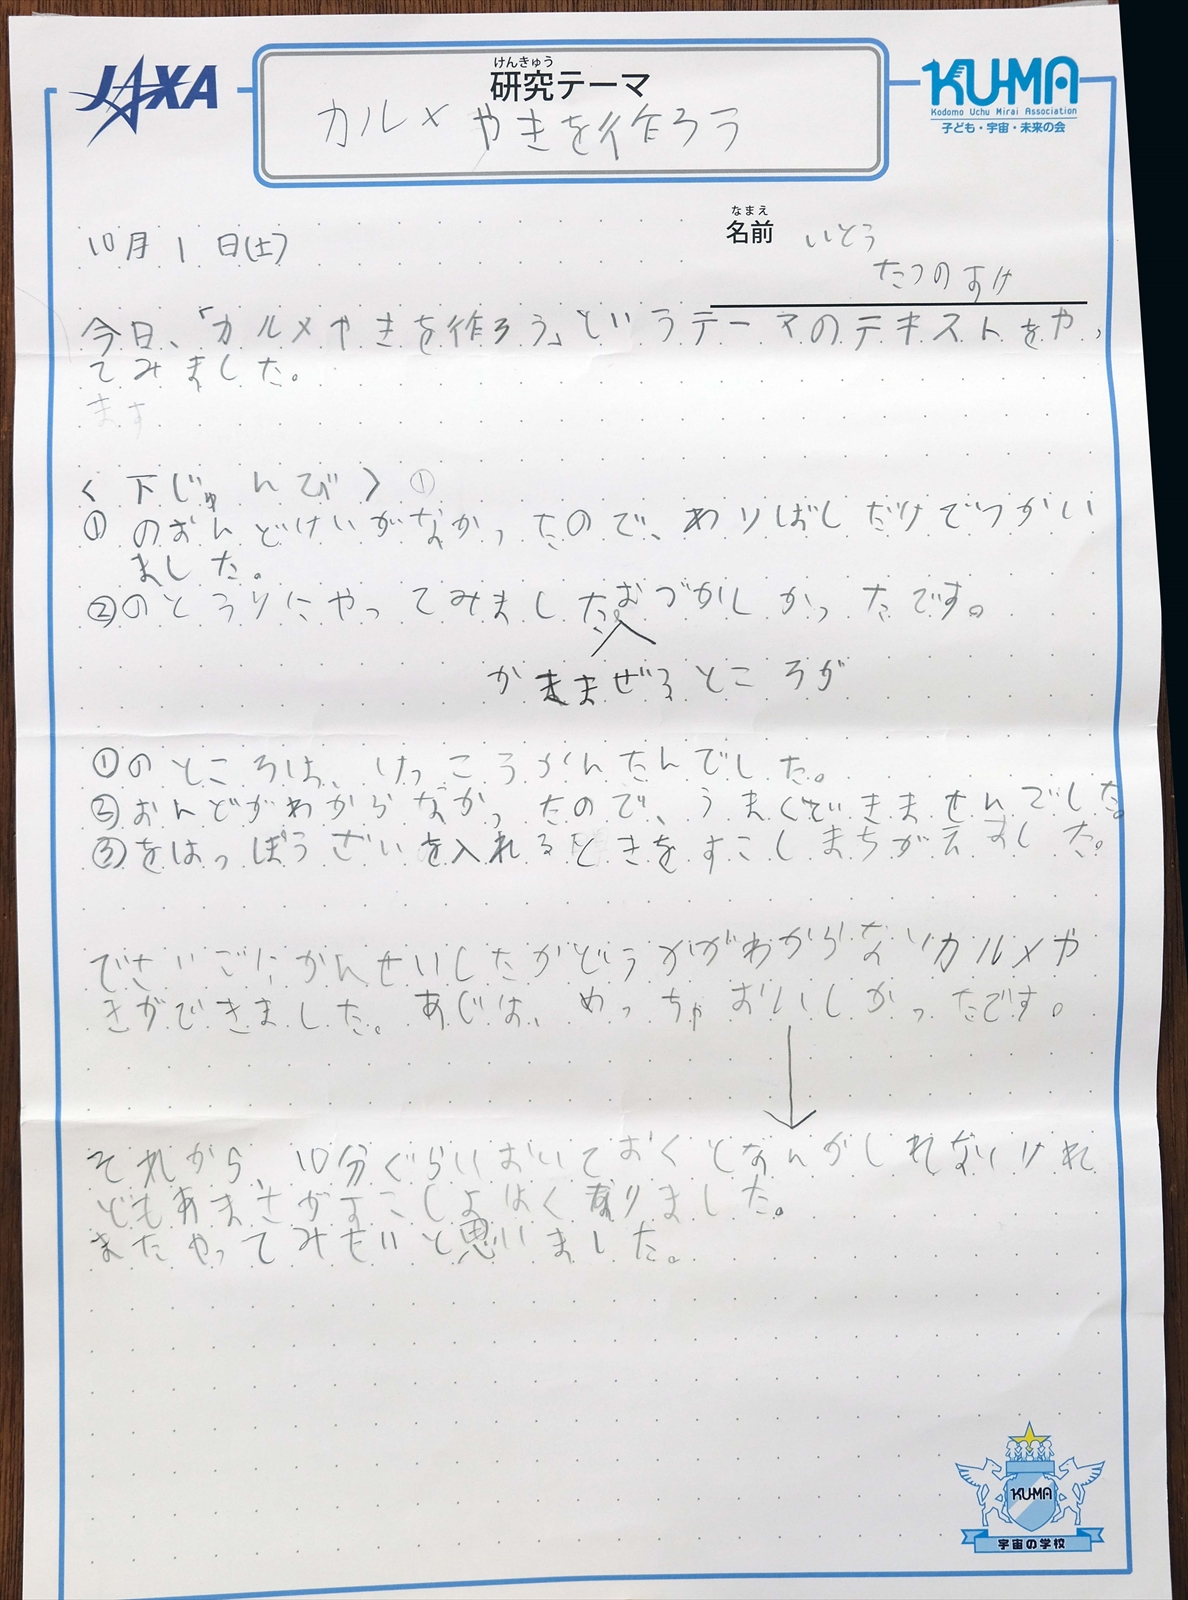 JAXA
けんきゅう
研究テーマ
カルメやきを作ろう
KU-MA
Kodomo Uchu Mirai Association
子ども・宇宙・未来の会
10月1日(土)
なまえ
名前
いとう
たつのすけ
今日、「カルメやきを作ろう」というテーマのテキストをやっ
てみました。
ます
〈下じゅんび〉①
①のおんどけいがなかったので、わりばしだけでつかい
ました。
②のとうりにやってみました。おづかしかったです。
かままぜるところが
①のところは、けっこうかんたんでした。
②おんどがわからなかったので、うまくできませんでした。
③をはっぽうざいを入れるときをすこしまちがえました。
でさいごにかんせいしたかどうかがわからないカルメや
きができました。あじは、めっちゃおいしかったです。
それから、10分ぐらいおいておくとなんかしれないけれ
どもあまさがすこしよはくなりました。
またやってみたいと思いました。
KU-MA
宇宙の学校